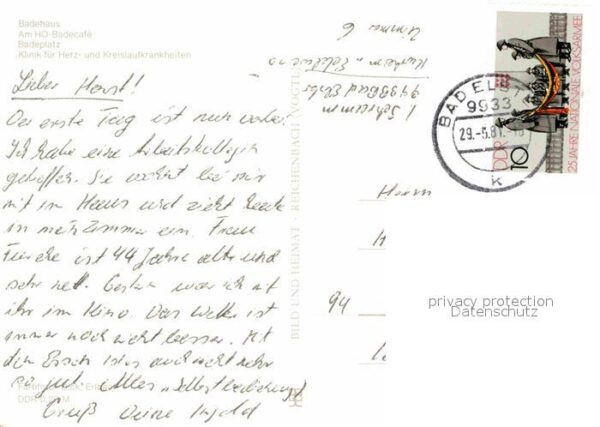 Badehaus
Am HO-Badecafé
Badeplatz
Klinik für Herz- und Kreislaufkrankheiten
Lieber Horst!
Der erste Tag ist nun vorbei.
Ich habe eine Arbeitskollegin
getroffen. Sie wohnt bei mir
mit im Haus und zieht heute
in mein Zimmer ein. Frau
ist 44 Jahre alt und
sehr nett. Gestern war ich mit
ihr im Kino. Das Wetter ist
immer noch nicht besser. Mit
dem Essen ist es auch nicht mehr
so gut. Alles Selbstbedienung
Gruß Deine
DDR 0,20 M
BILD UND HEIMAT REICHENBACH (VOGTL
Schramm
9933 Bad Elster
Kurheim
Zimmer 6
BAD ELST
9933
29.-5.81
k
DDR
10
25 JAHRE NATIONALE VOLKSARMEE
Herrn
H
94
privacy protection
Datenschutz